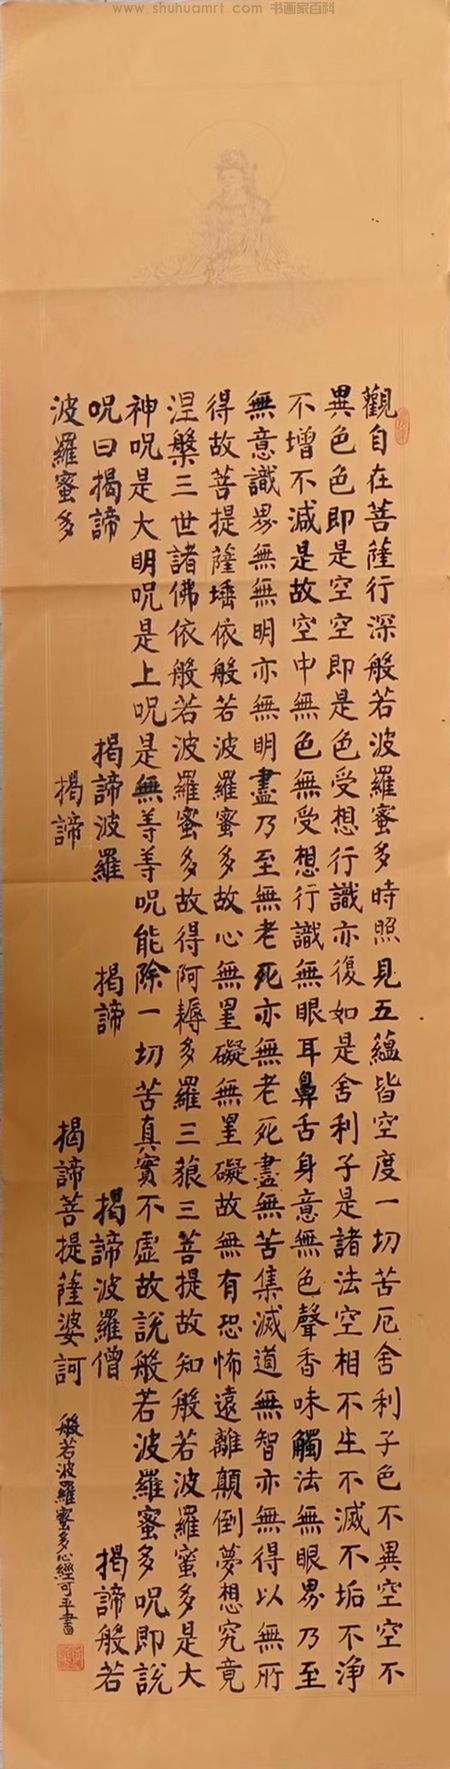 www.shuhuamrt.com 书画家百科
觀自在菩薩行深般若波羅蜜多時照見五蘊皆空度一切苦厄舍利子色不異空空不
異色色即是空空即是色受想行識亦復如是舍利子是諸法空相不生不滅不垢不淨
不增不減是故空中無色無受想行識無眼耳鼻舌身意無色聲香味觸法無眼界乃至
無意識界無無明亦無明盡乃至無老死亦無老死盡無苦集滅道無智亦無得以無所
得故菩提薩埵依般若波羅蜜多故心無罣礙無罣礙故無有恐怖遠離顛倒夢想究竟
涅槃三世諸佛依般若波羅蜜多故得阿耨多羅三藐三菩提故知般若波羅蜜多是大
神呪是大明呪是上呪是無等等呪能除一切苦真實不虛故說般若波羅蜜多呪即說
呪曰揭諦 揭諦波羅 揭諦 揭諦波羅僧 揭諦般若
波羅蜜多 揭諦 揭諦菩提薩婆訶
般若波羅蜜多心經可平書